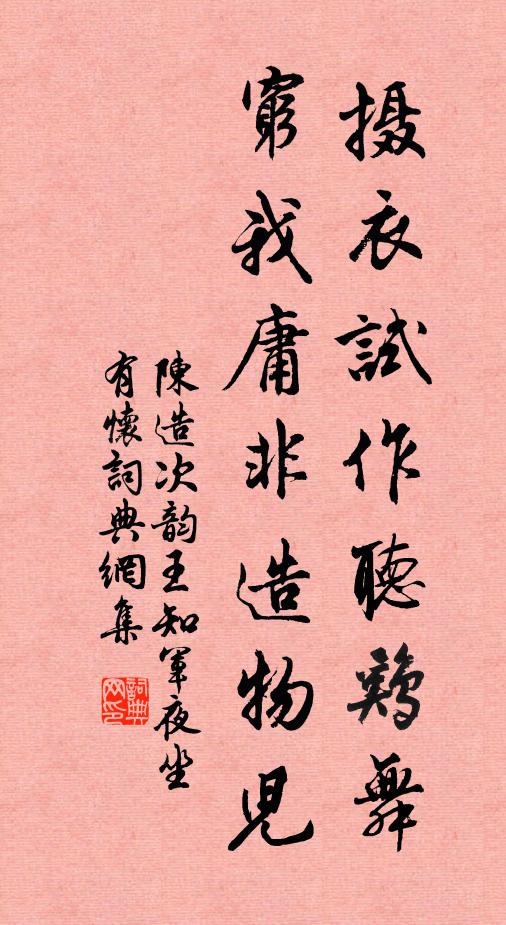 摄衣試作聽鷄舞
窮我庸非造物児
陳造次韵王知軍夜坐
有懷詞典網集
詞典网印